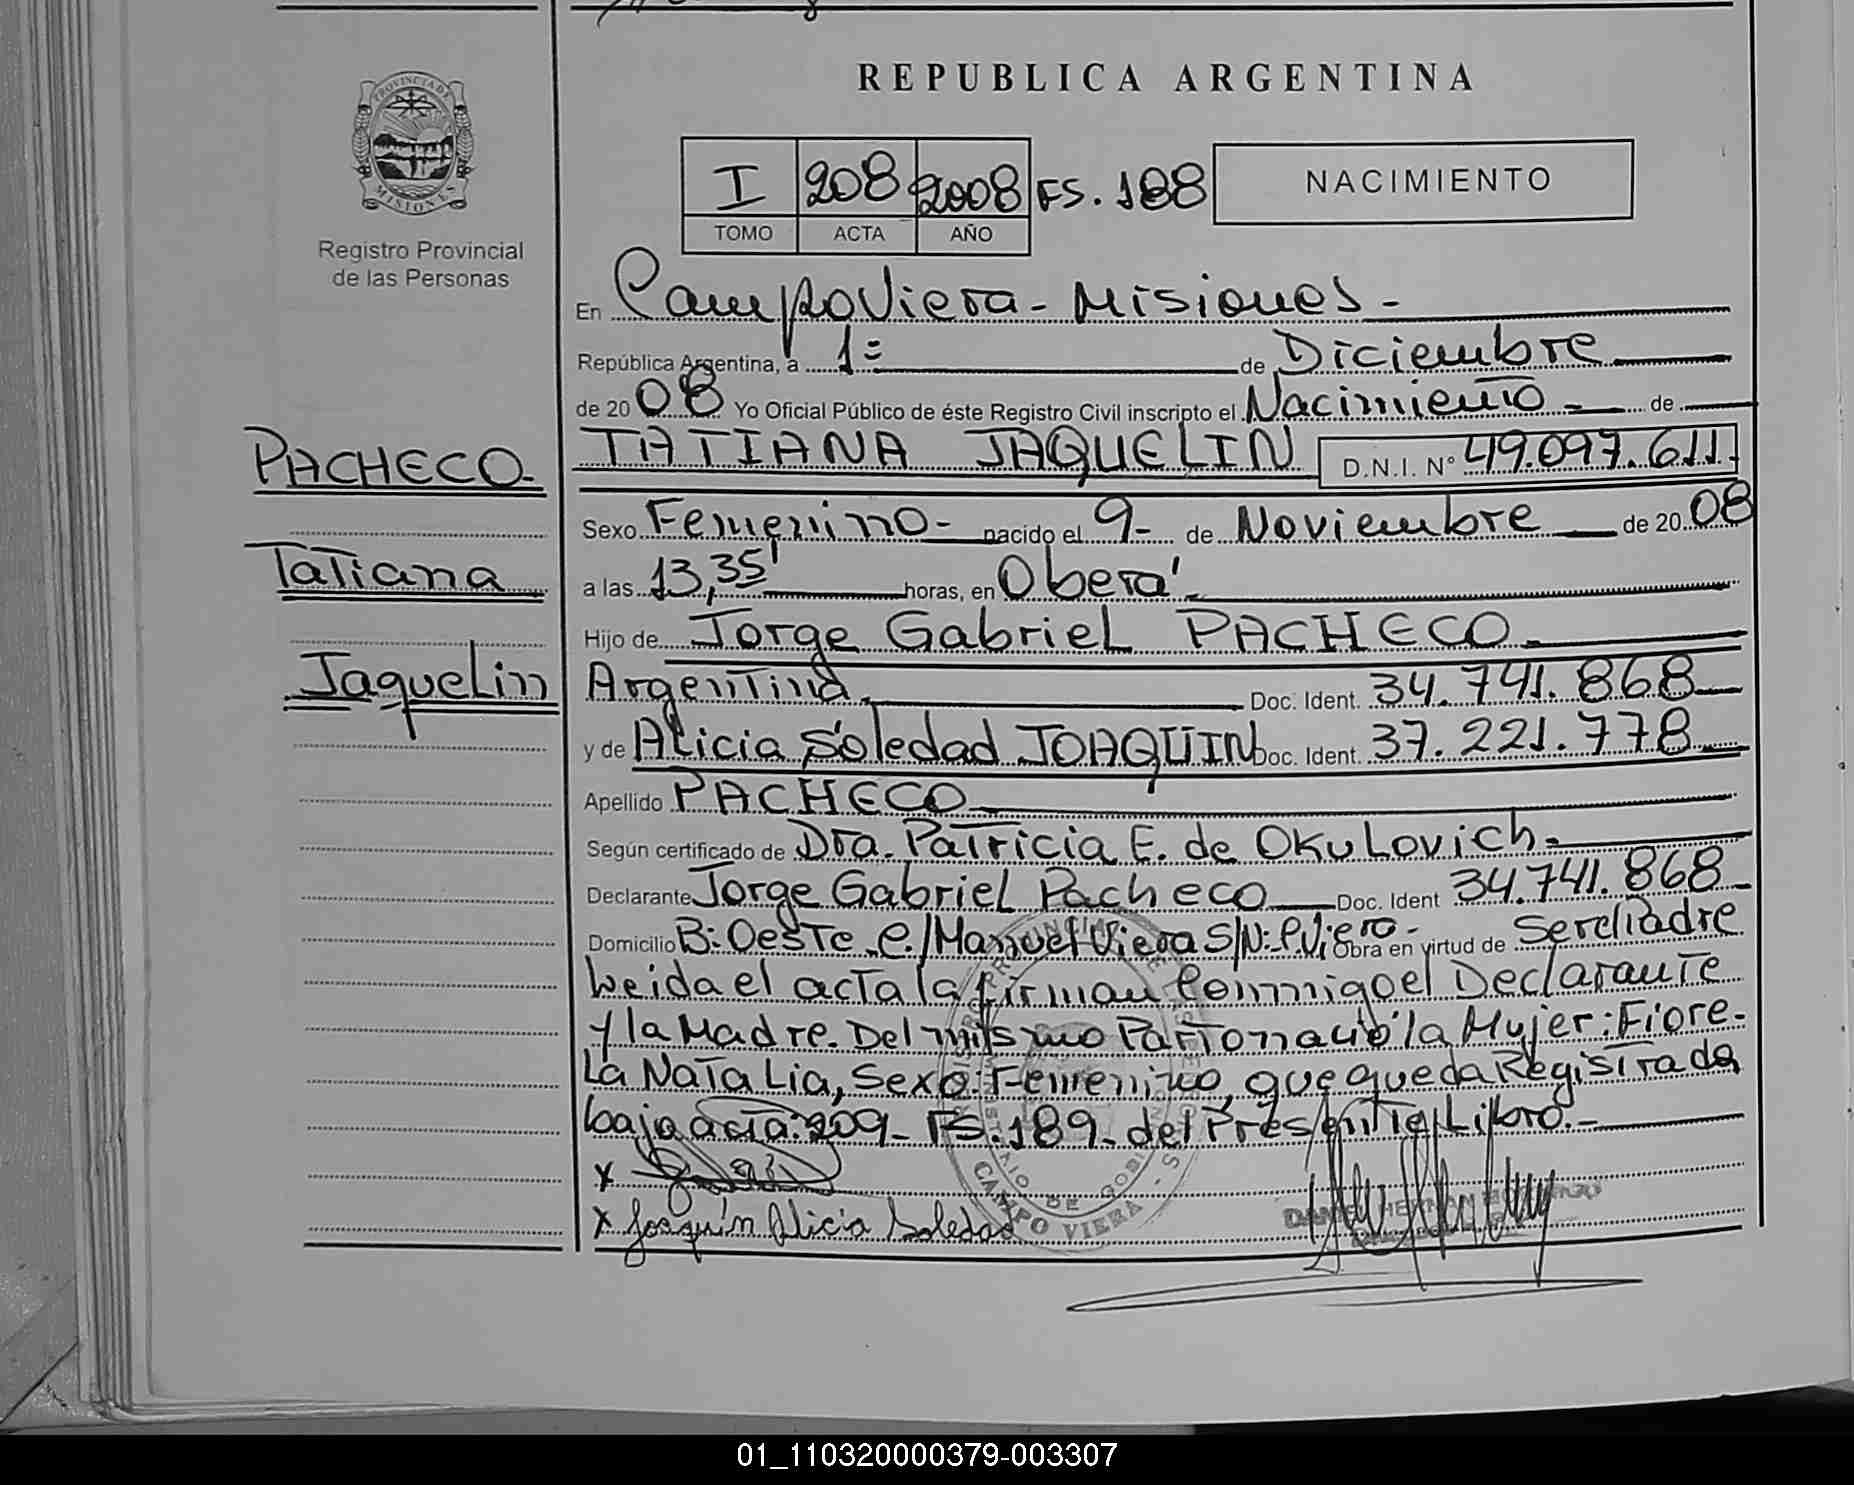 REPUBLICA ARGENTINA
PROVINCIA DE MISIONES
Registro Provincial
de las Personas
I 208 2008 FS. 188
TOMO ACTA AÑO
NACIMIENTO
En CampoViera - Misiones -
República Argentina, a 1= de Diciembre
de 2008 Yo Oficial Público de éste Registro Civil inscripto el Nacimiento - de
PACHECO-
Tatiana
Jaquelin
TATIANA JAQUELIN D.N.I. N° 49.097.611-
Sexo Femenino - nacido el 9- de Noviembre de 2008
a las 13,35' horas, en Oberá -
Hijo de Jorge Gabriel PACHECO -
Argentina Doc. Ident. 34.741.868
y de Alicia Soledad JOAQUIN Doc. Ident. 37.221.778
Apellido PACHECO
Según certificado de Dra. Patricia E. de Okulovich -
Declarante Jorge Gabriel Pacheco Doc. Ident 34.741.868
Domicilio B: Oeste C./Manuel Viera S/N: Obra en virtud de Ser el Padre
Leida el acta la firman Conmigo el Declarante
y la Madre. Del mismo Parto nació la Mujer: Fiore-
La Natalia, Sexo: Femenino, que queda Registrada
bajo acta: 209 - FS. 189 - del Presente Libro. -
x
x Joaquin Alicia Soledad
CAMPO VIERA
01_110320000379-003307